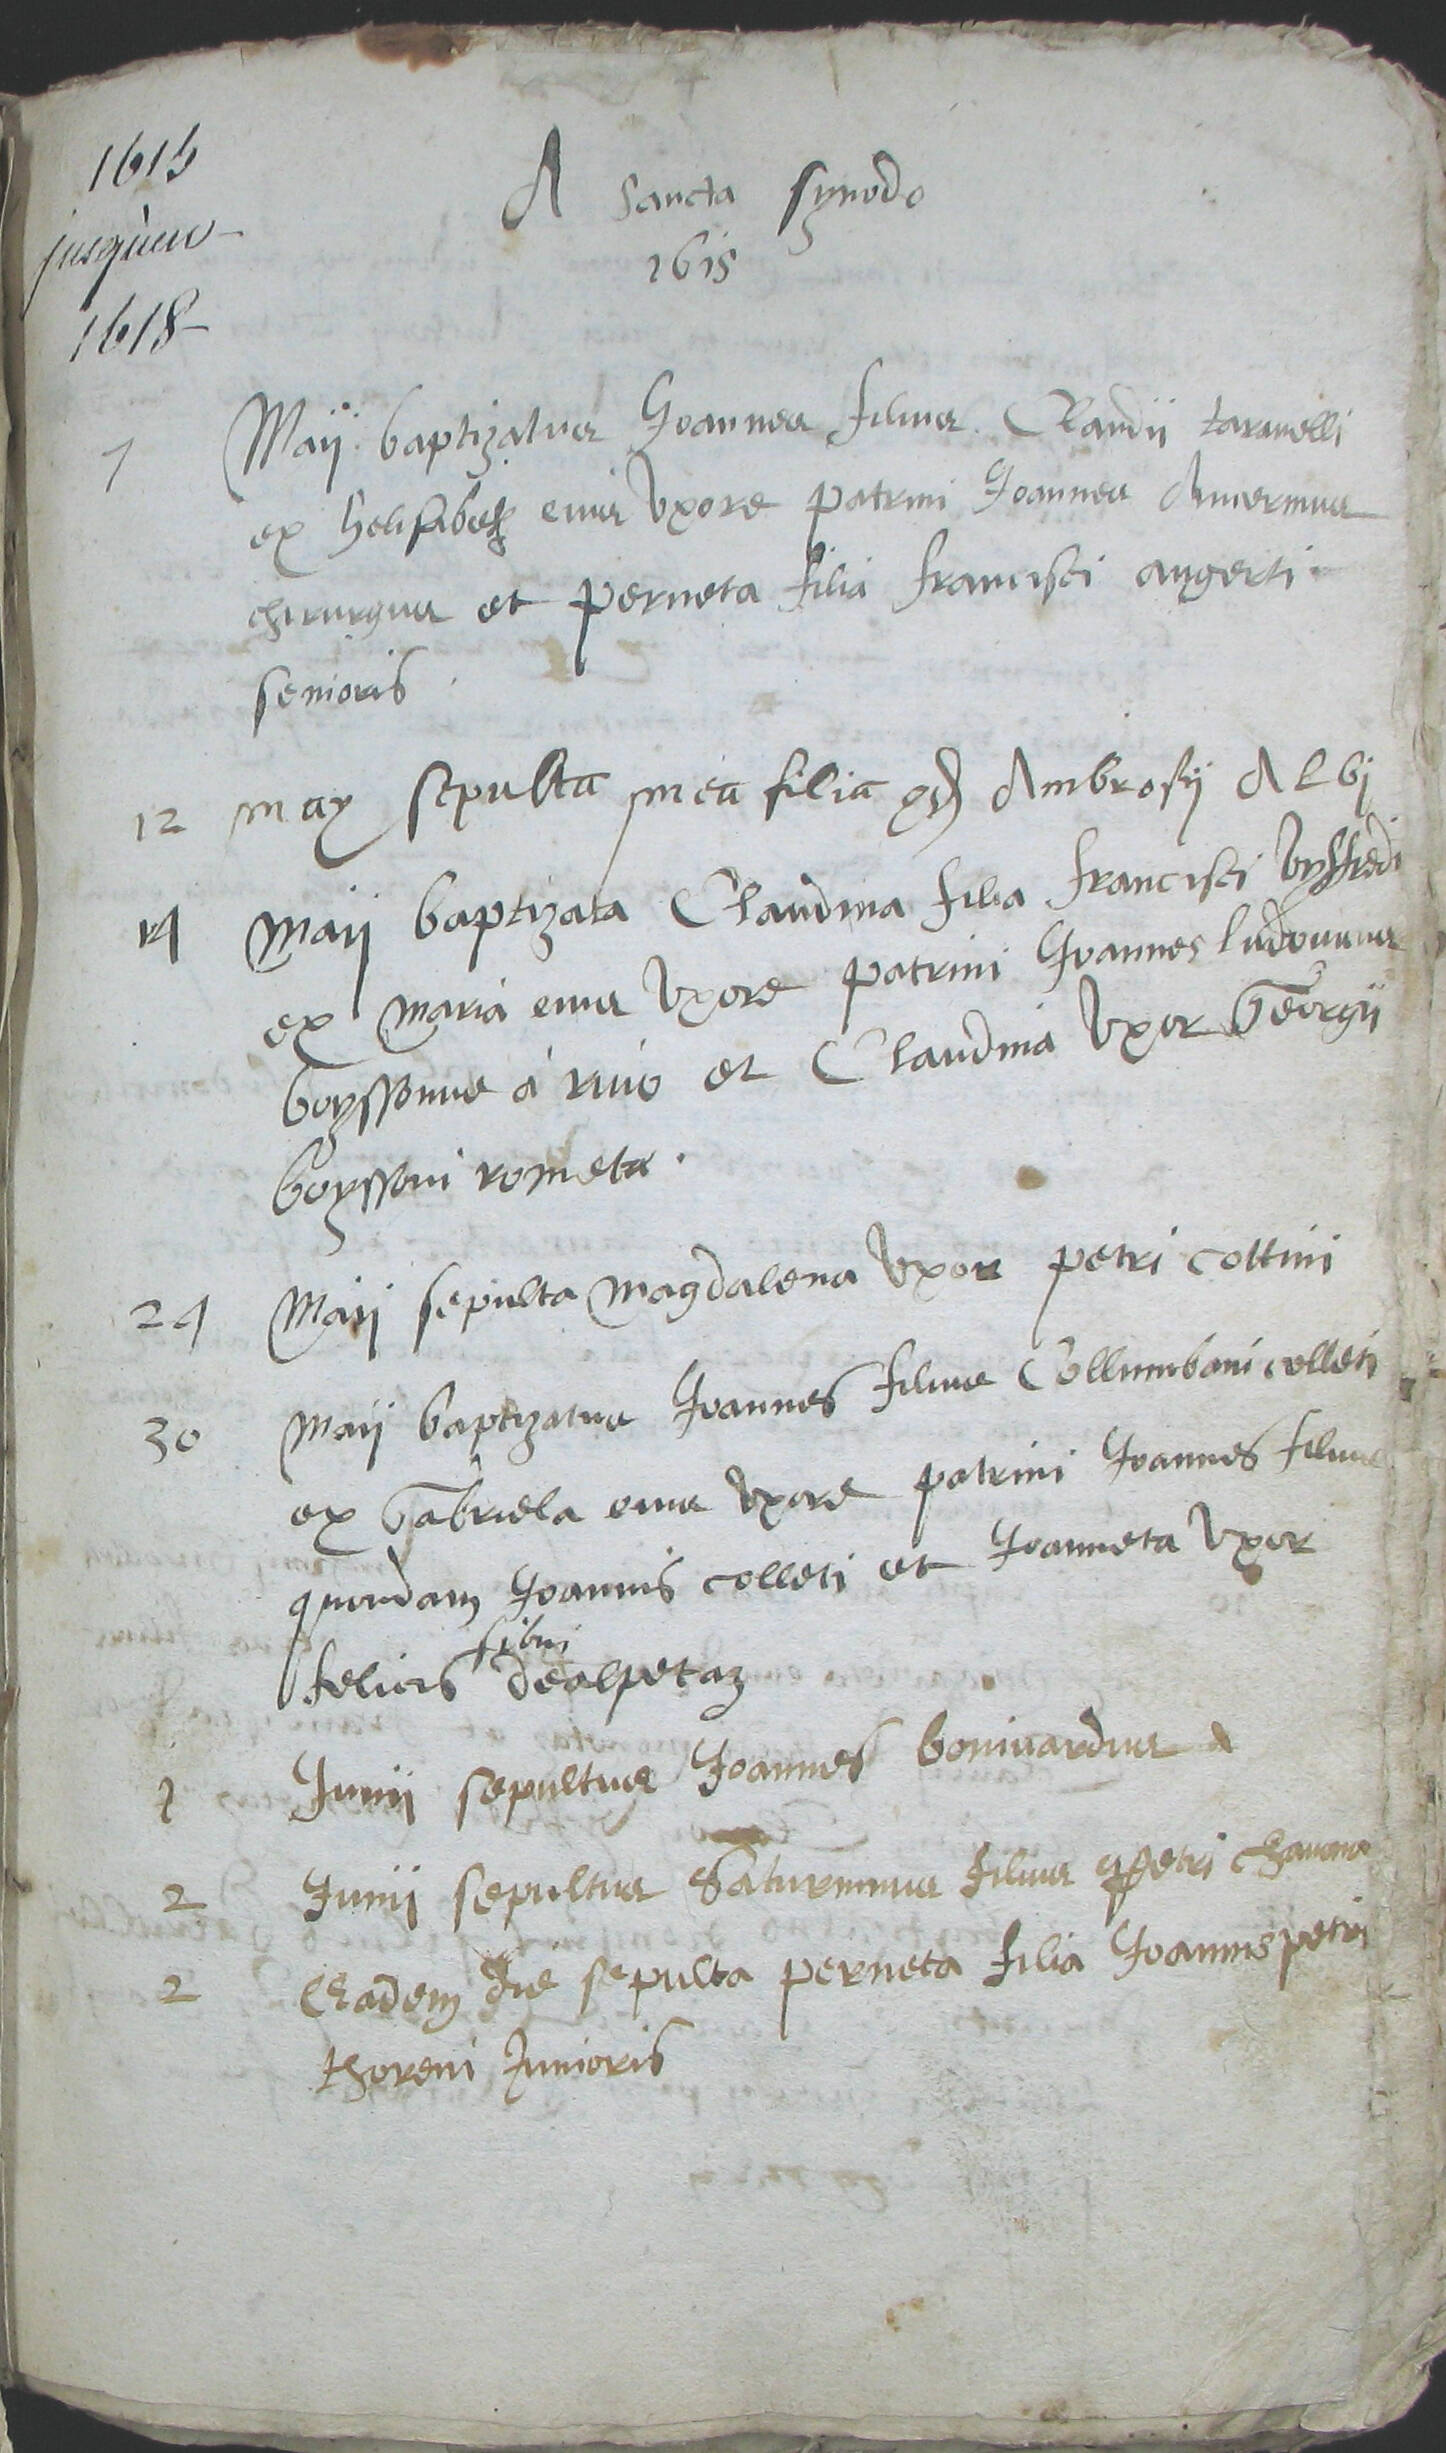 1615
jusqu'en
1618
A sancta synodo
1615
7 Maij baptizatus Joannes filius Claudii taravelli
ex helisabeth eius Uxore patrini Joannes
chirurgus et perneta filia francisci augerti
senioris
12 may sepulta mea filia qd Ambrosij Albj
14 Maij baptizata Claudina filia francisci
ex maria eius Uxore patrini Joannes ludovicus
boyssonus a rivo et Claudina Uxor Georgii
boyssoni rometa.
24 Maij sepulta Magdalena Uxor petri cottini
30 Maij baptizatus Joannes filius Collumbani colleti
ex Gabriela eius Uxore patrini Joannes filius
quondam Joannis colleti et Joanneta Uxor
felicis dealpetaz
1 Junii sepultus Joannes bonivardus
2 Junii sepultus Saturninus filius q petri
2 Eadem die sepulta perneta filia Joannis petri
thoreni Junioris